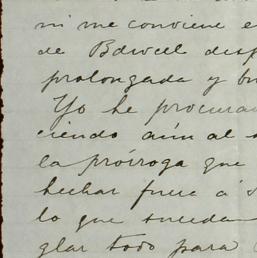 ni me conviene e
de Bdwell desp
prolongada y bu
Yo he procura
ciendo aún al
la prórroga que
hechar fuera á s
lo que suceda
glar todo para